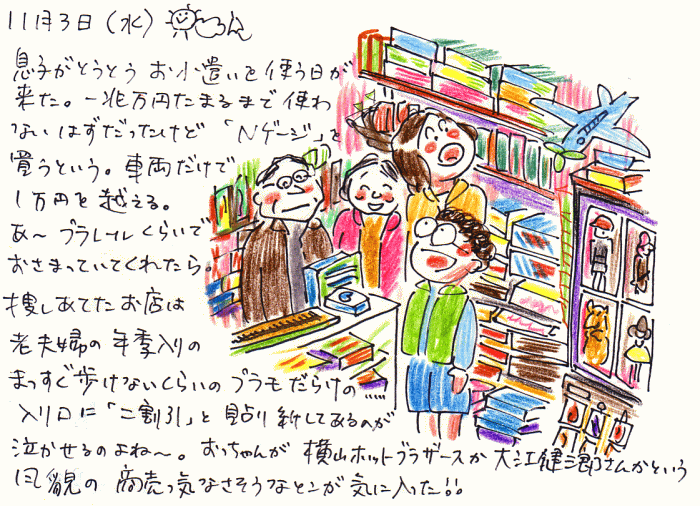 11月3日(水)
息子がとうとう お小遣いを使う日が
来た。一兆万円たまるまで使わ
ないはずだったけど「Nゲージ」を
買うという。車両だけで
1万円を越える。
あ〜 プラレールくらいで
おさまっていてくれたら。
捜しあてたお店は
老夫婦の年季入りの
まっすぐ歩けないくらいのプラモだらけの……
入り口に「二割引」と貼り紙してあるのが
泣かせるのよね〜。おっちゃんが 横山ホットブラザーズか 大江健三郎さんかという
風貌の 商売っ気なさそうなとこが気に入った!!